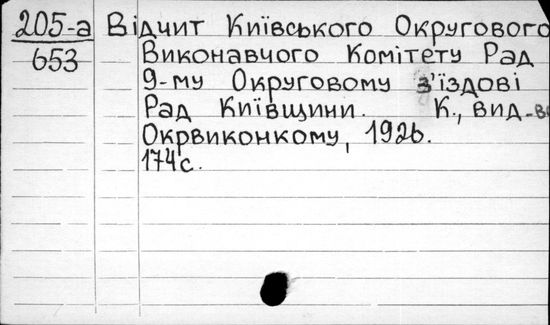 205-а Відчит Київського Округового
653 Виконавчого Комітету Рад
9-му Округовому з'їздові
Рад Київщини. К., вид-во
Окрвиконкому, 1926.
174 с.